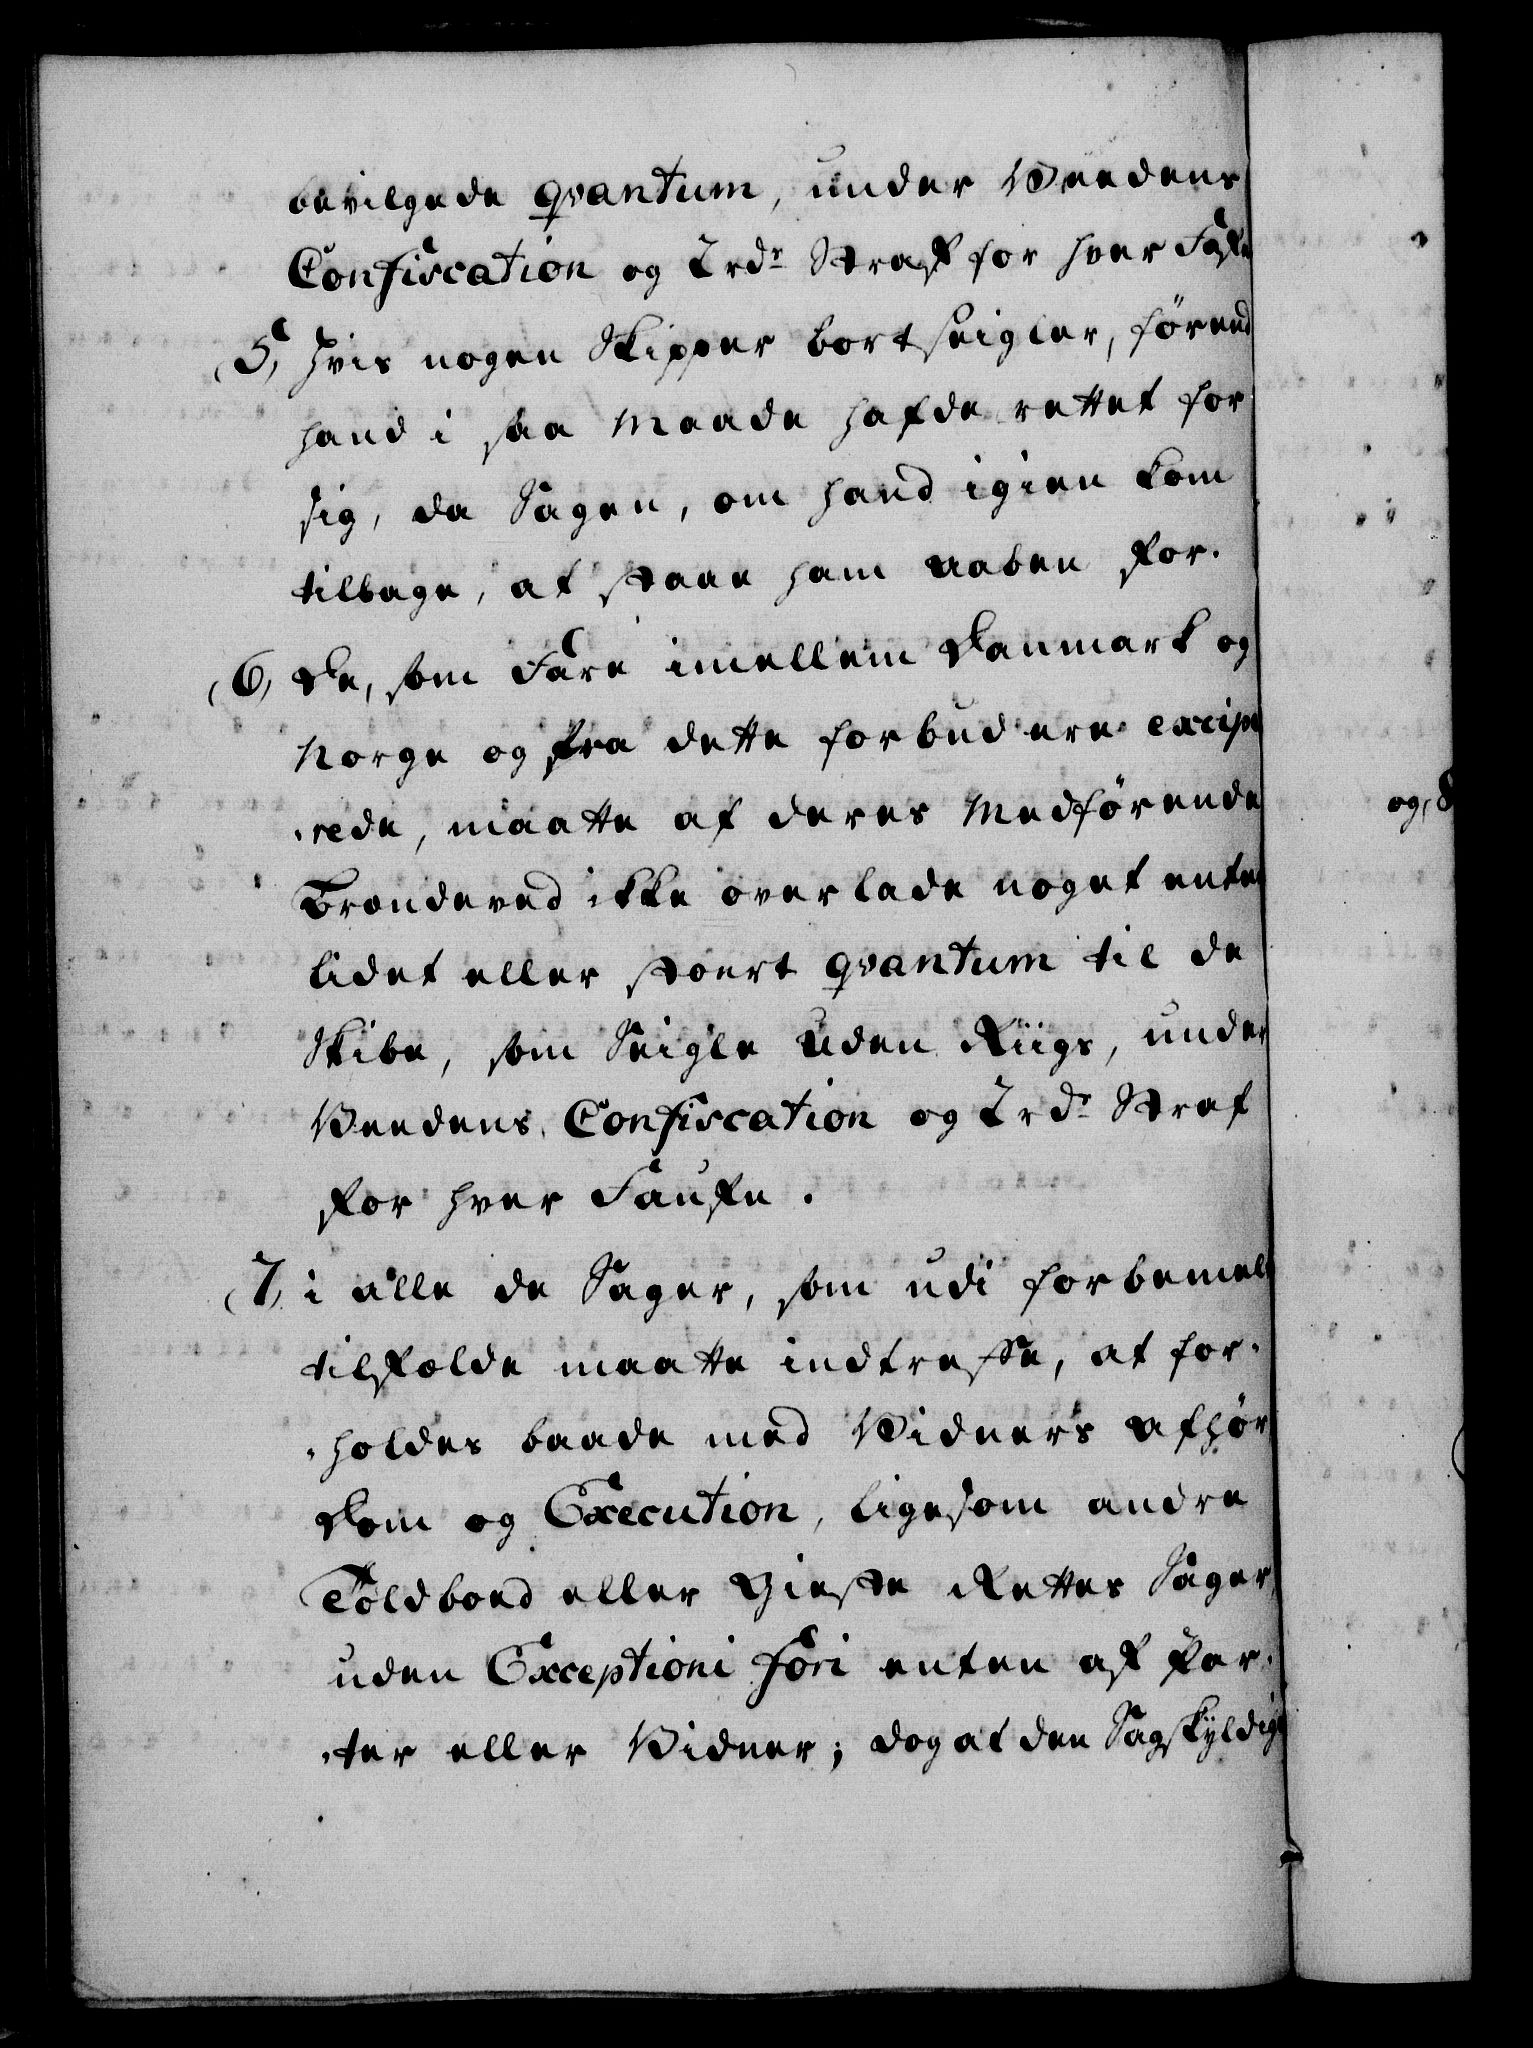 bevilgede qvantum, under Veedens
Confiscation og 2 rdr Straf for hver
(5, Hvis nogen Skipper bortseigler, førend
hand i saa Maade hafde rettet for
sig, da Sagen, om hand igien kom
tilbage, at staae ham aaben for.
(6, De, som fare imellem Danmark og
Norge og fra dette forbud ere excipe
rede, maatte af deres Medførende
Brændeved ikke overlade noget enten
lidet eller stoert qvantum til de
Skibe, som Seigle uden Riigs, under
Veedens Confiscation og 2 rdr Straf
for hver Faufn.
(7, i alle de Sager, som udi forbemelte
tilfælde maatte indtreffe, at for-
-holdes baade med Vidners afhør
Dom og Execution, ligesom andre
Toldboed eller Gieste Rettes Sager,
uden Exceptioni fori enten af Par-
-ter eller Vidner; dog at den Sagskyldige
og, 8